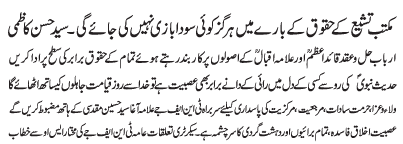 مکتب تشیع کے حقوق کے بارے میں ہرگز کوئی سودا بازی نہیں کی جائے گی۔ سید حسن کاظمی
ارباب حل و عقد قائد اعظمؒ اور علامہ اقبالؒ کے اصولوں پر کاربند رہتے ہوئے تمام کے حقوق برابری کی سطح پر ادا کریں
حدیث نبویؐ کی رو سے کسی کے دل میں رائی کے دانے برابر بھی عصبیت ہے تو خدا سے روز قیامت جاہلوں کیساتھ اٹھائے گا
ولاء و عزا، حرمت سادات، مرجعیت، مرکزیت کی پاسداری کیلئے سربراہ ٹی این ایف جے علامہ آغا سید حسین مقدسی کے ہاتھ مضبوط کریں گے
عصبیت اخلاق فاسدہ، تمام برائیوں اور دہشت گردی کا سرچشمہ ہے۔ سیکرٹری تعلقات عامہ ٹی این ایف جے کی مختار ایس او سے خطاب